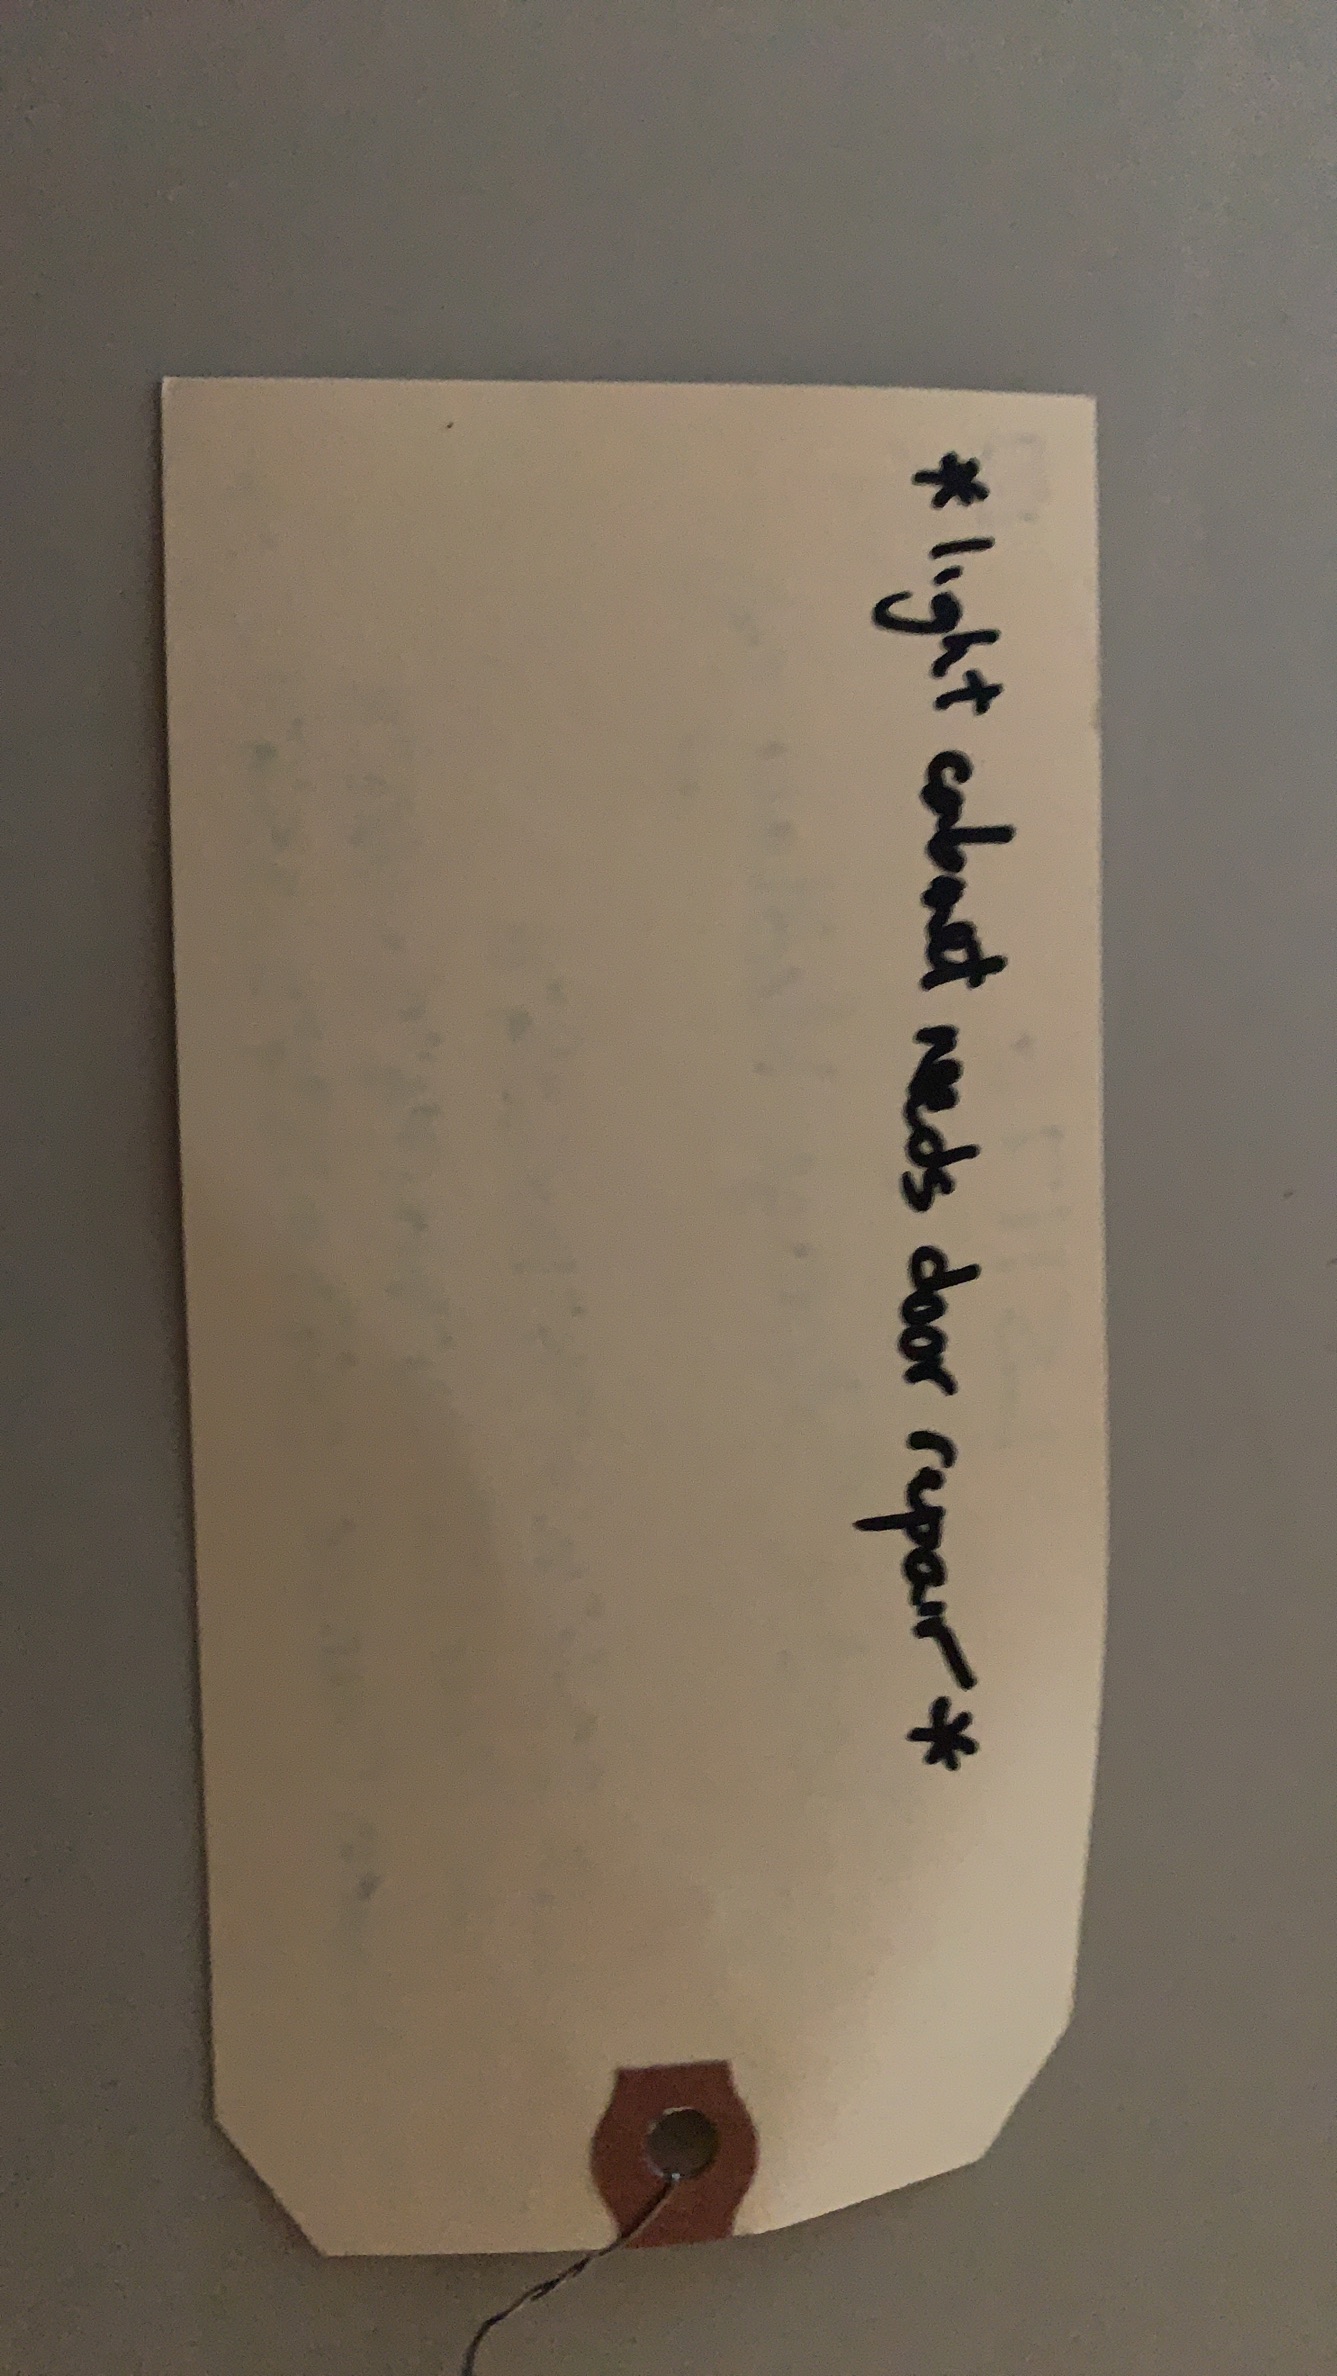 *light cabinet needs door repair*